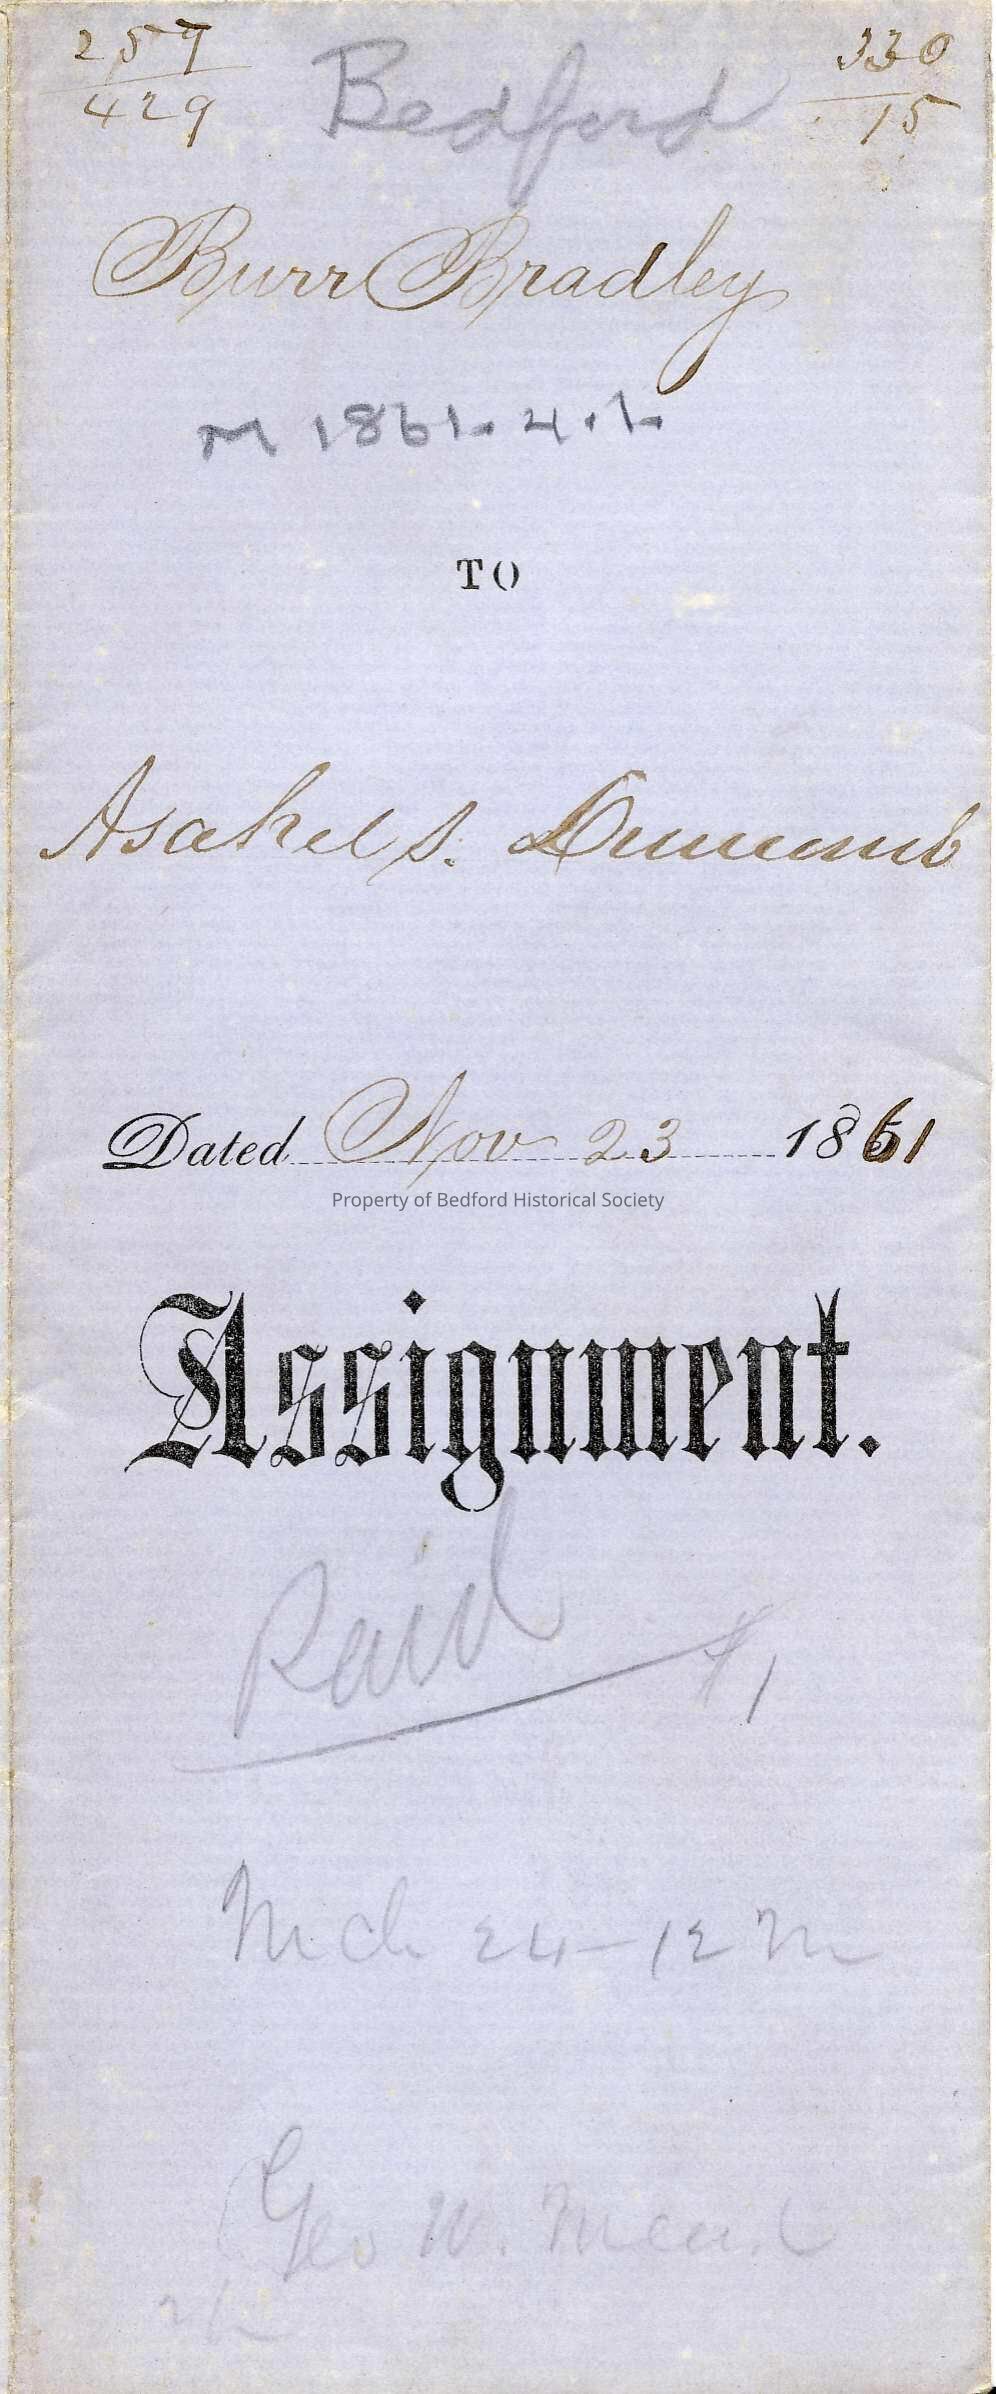 257 330
429 15
Bedford
Burr Bradley
M 1861. 4. 1.
TO
Asahel S. Dunscomb
Dated Nov 23 1861
Property of Bedford Historical Society
Assignment.
Paid $1
Mch 24 - 12 M
Geo W. Mead